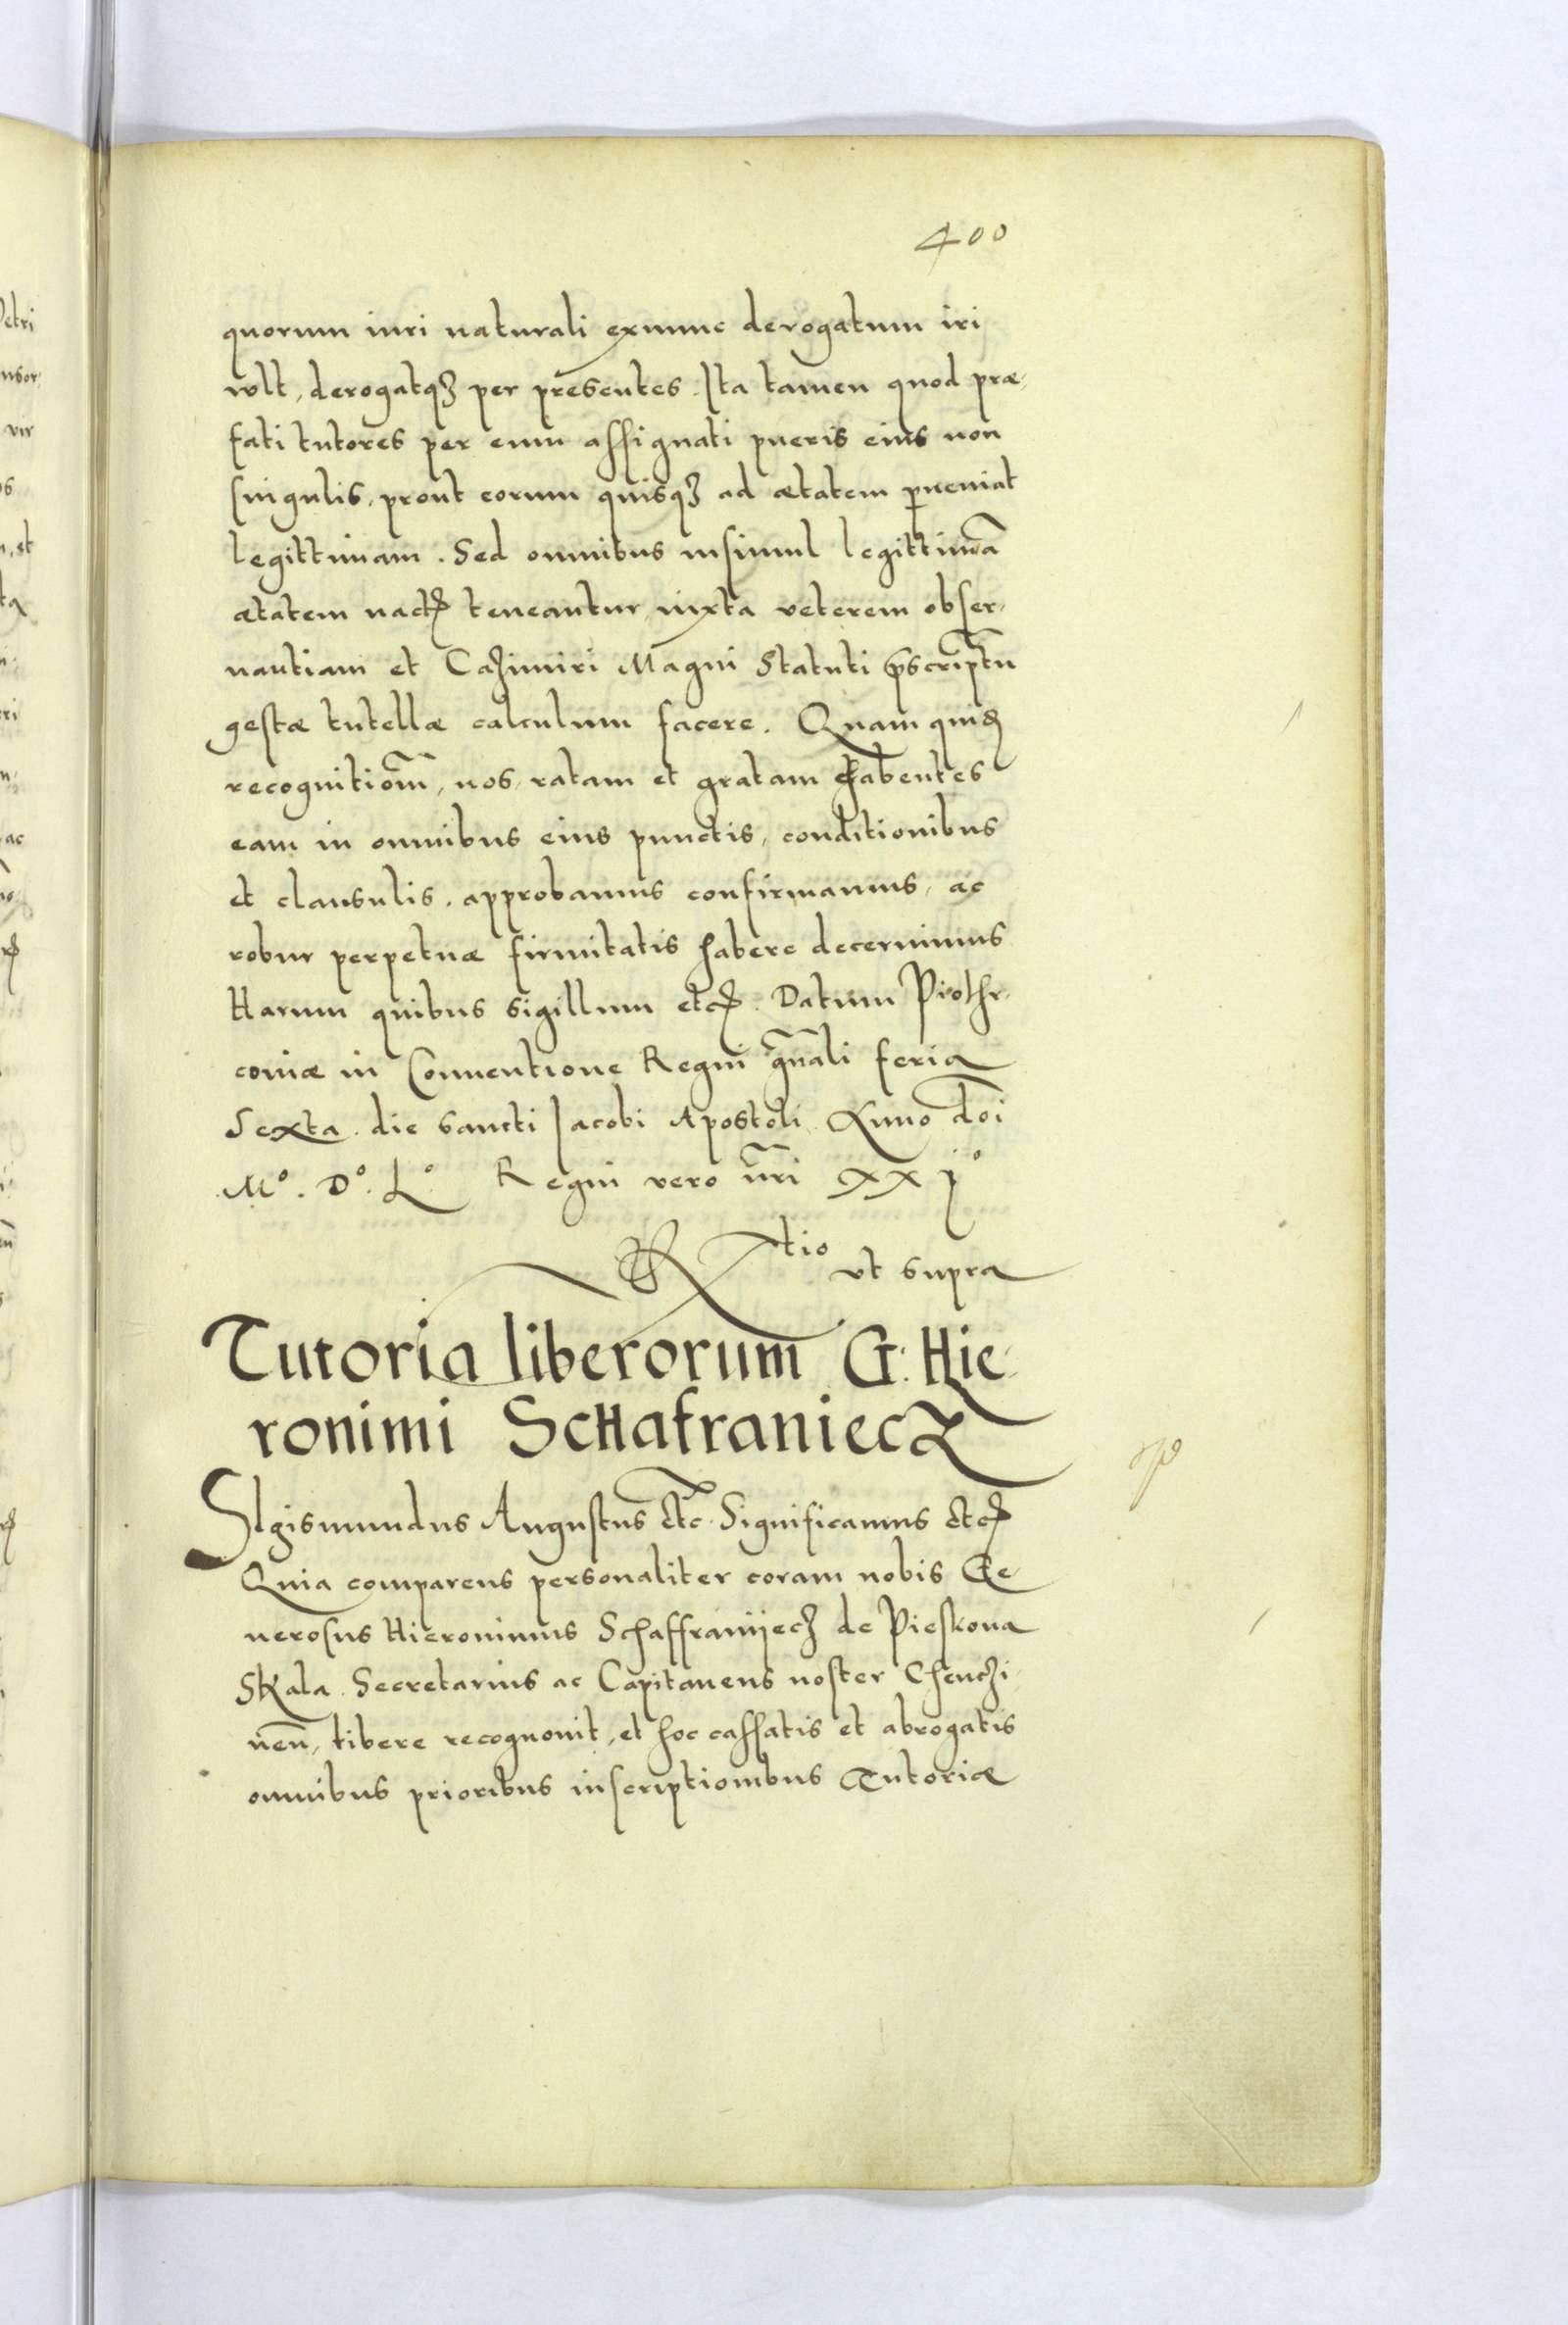 400
quorum iuri naturali exnunc derogatum iri
vult, derogatqꝫ per presentes. Ita tamen quod præ-
fati tutores per eum assignati pueris eius non
singulis, prout eorum quisqꝫ ad ætatem ꝑueniat
legittimam. Sed omnibus insimul legittimā
ætatem nactꝭ teneantur iuxta veterem obser-
uantiam et Cazimiri Magni Statuti p̄scriptū
gestæ tutellæ calculum facere. Quam quidꝫ
recognitionē, nos, ratam et gratam habentes
eam in omnibus eius punctis, conditionibus
et clausulis, approbamus confirmamus, ac
robur perpetuæ firmitatis habere decernimus
Harum quibus sigillum etcꝭ. Datum Piothr-
couiæ in Conuentione Regni gn̄ali feria
Sexta die sancti Jacobi Apostoli Anno dn̄i
Mº. Dº. Lº Regni vero nr̄i XXIº
Rtio vt supra
Tutoria liberorum G: Hie-
ronimi Schafraniecz
SIgismundus Augustus etc. Significamus etcꝭ
Quia comparens personaliter coram nobis Ge-
nerosus Hieronimus Schaffranyecz de Pieskoua
Skala Secretarius ac Capitaneus noster Chenczi-
nen̄, libere recognouit, et hoc cassatis et abrogatis
omnibus prioribus inscriptionibus Tutoriæ